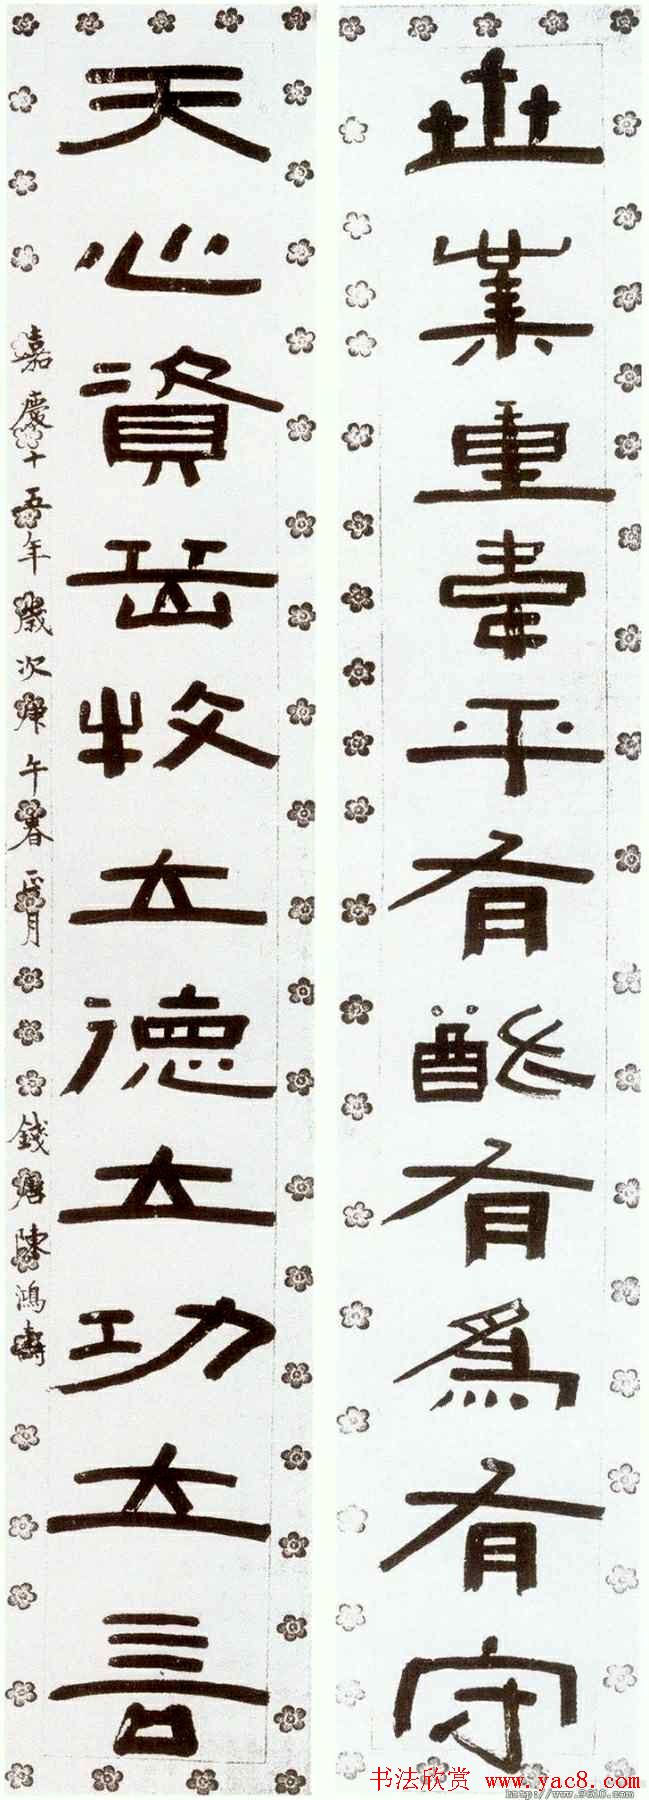 世業重韋平有猷有為有守
天心資岳牧立德立功立言
嘉慶十五年歲次庚午春正月 錢唐陳鴻壽
书法欣赏 www.yac8.com
http://www.9610.com